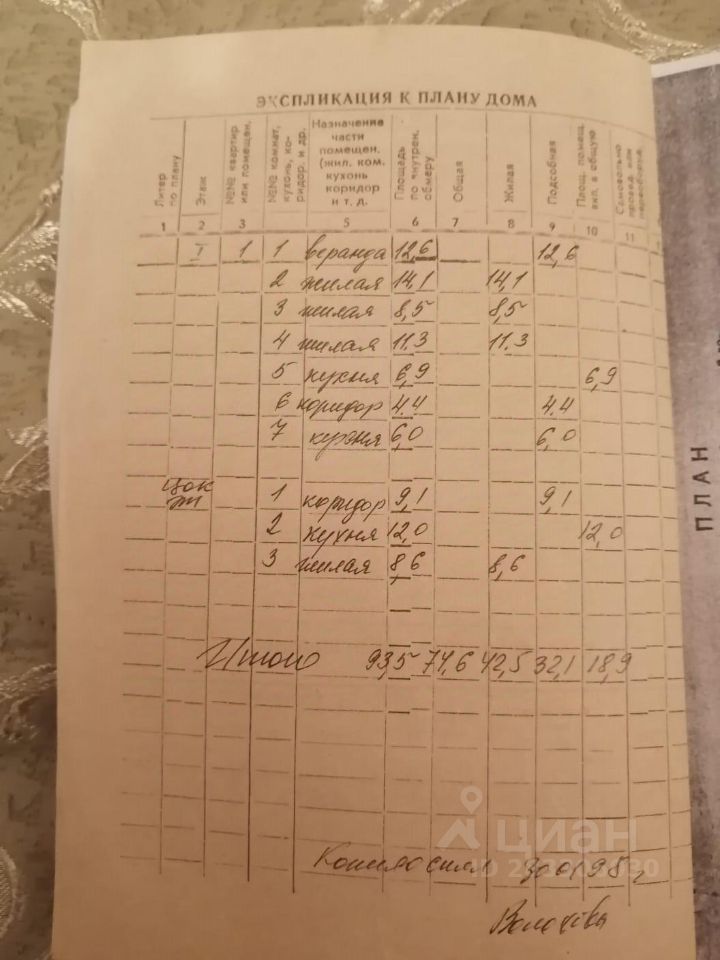 ЭКСПЛИКАЦИЯ К ПЛАНУ ДОМА
Литер по плану
Этаж
№№ квартир или помещен.
№№ комнат, кухонь, коридор. и др.
Назначение части помещен. (жил. ком. кухонь коридор и т. д.
Площадь по внутрен. обмеру
Общая
Жилая
Подсобная
Площ. помещ. вкл. в общую
Самовольно
1 2 3 4 5 6 7 8 9 10 11
I 1 1 веранда 12,6 12,6
2 жилая 14,1 14,1
3 жилая 8,5 8,5
4 жилая 11.3 11.3
5 кухня 6,9 6,9
6 коридор 4.4 4.4
7 кухня 6,0 6,0
цок эт 1 коридор 9,1 9,1
2 кухня 12,0 12,0
3 жилая 8,6 8,6
Итого 93,5 74,6 42,5 32,1 18,9
циан
ПЛАН